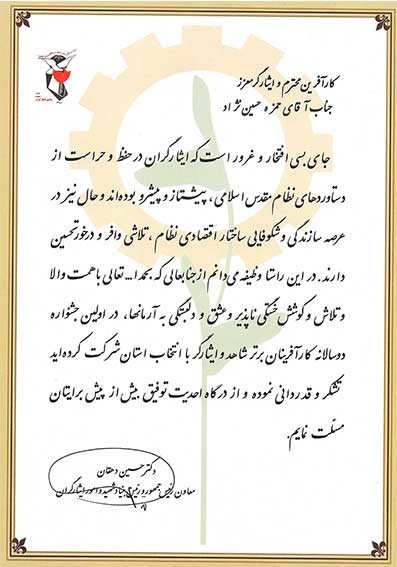 کارآفرین محترم و ایثارگر معزز
جناب آقای حمزه حسین نژاد
جای بسی افتخار و غرور است که ایثارگران در حفظ و حراست از
دستاوردهای نظام مقدس اسلامی، پیشتاز و پیشرو بوده‌اند و حال نیز در
عرصه سازندگی و شکوفایی ساختار اقتصادی نظام، تلاشی وافر و درخور تحسین
دارند. در این راستا وظیفه می‌دانم از جنابعالی که بحمدا... تعالی با همت والا
و تلاش و کوشش خستگی ناپذیر و عشق و دلبستگی به آرمانها، در اولین جشنواره
دوسالانه کارآفرینان برتر شاهد و ایثارگر با انتخاب استان شرکت کرده‌اید
تشکر و قدردانی نموده و از درگاه احدیت توفیق بیش از پیش برایتان
مسئلت نمایم.
دکتر حسین دهقان
معاون رئیس جمهور و رئیس بنیاد شهید و امور ایثارگران